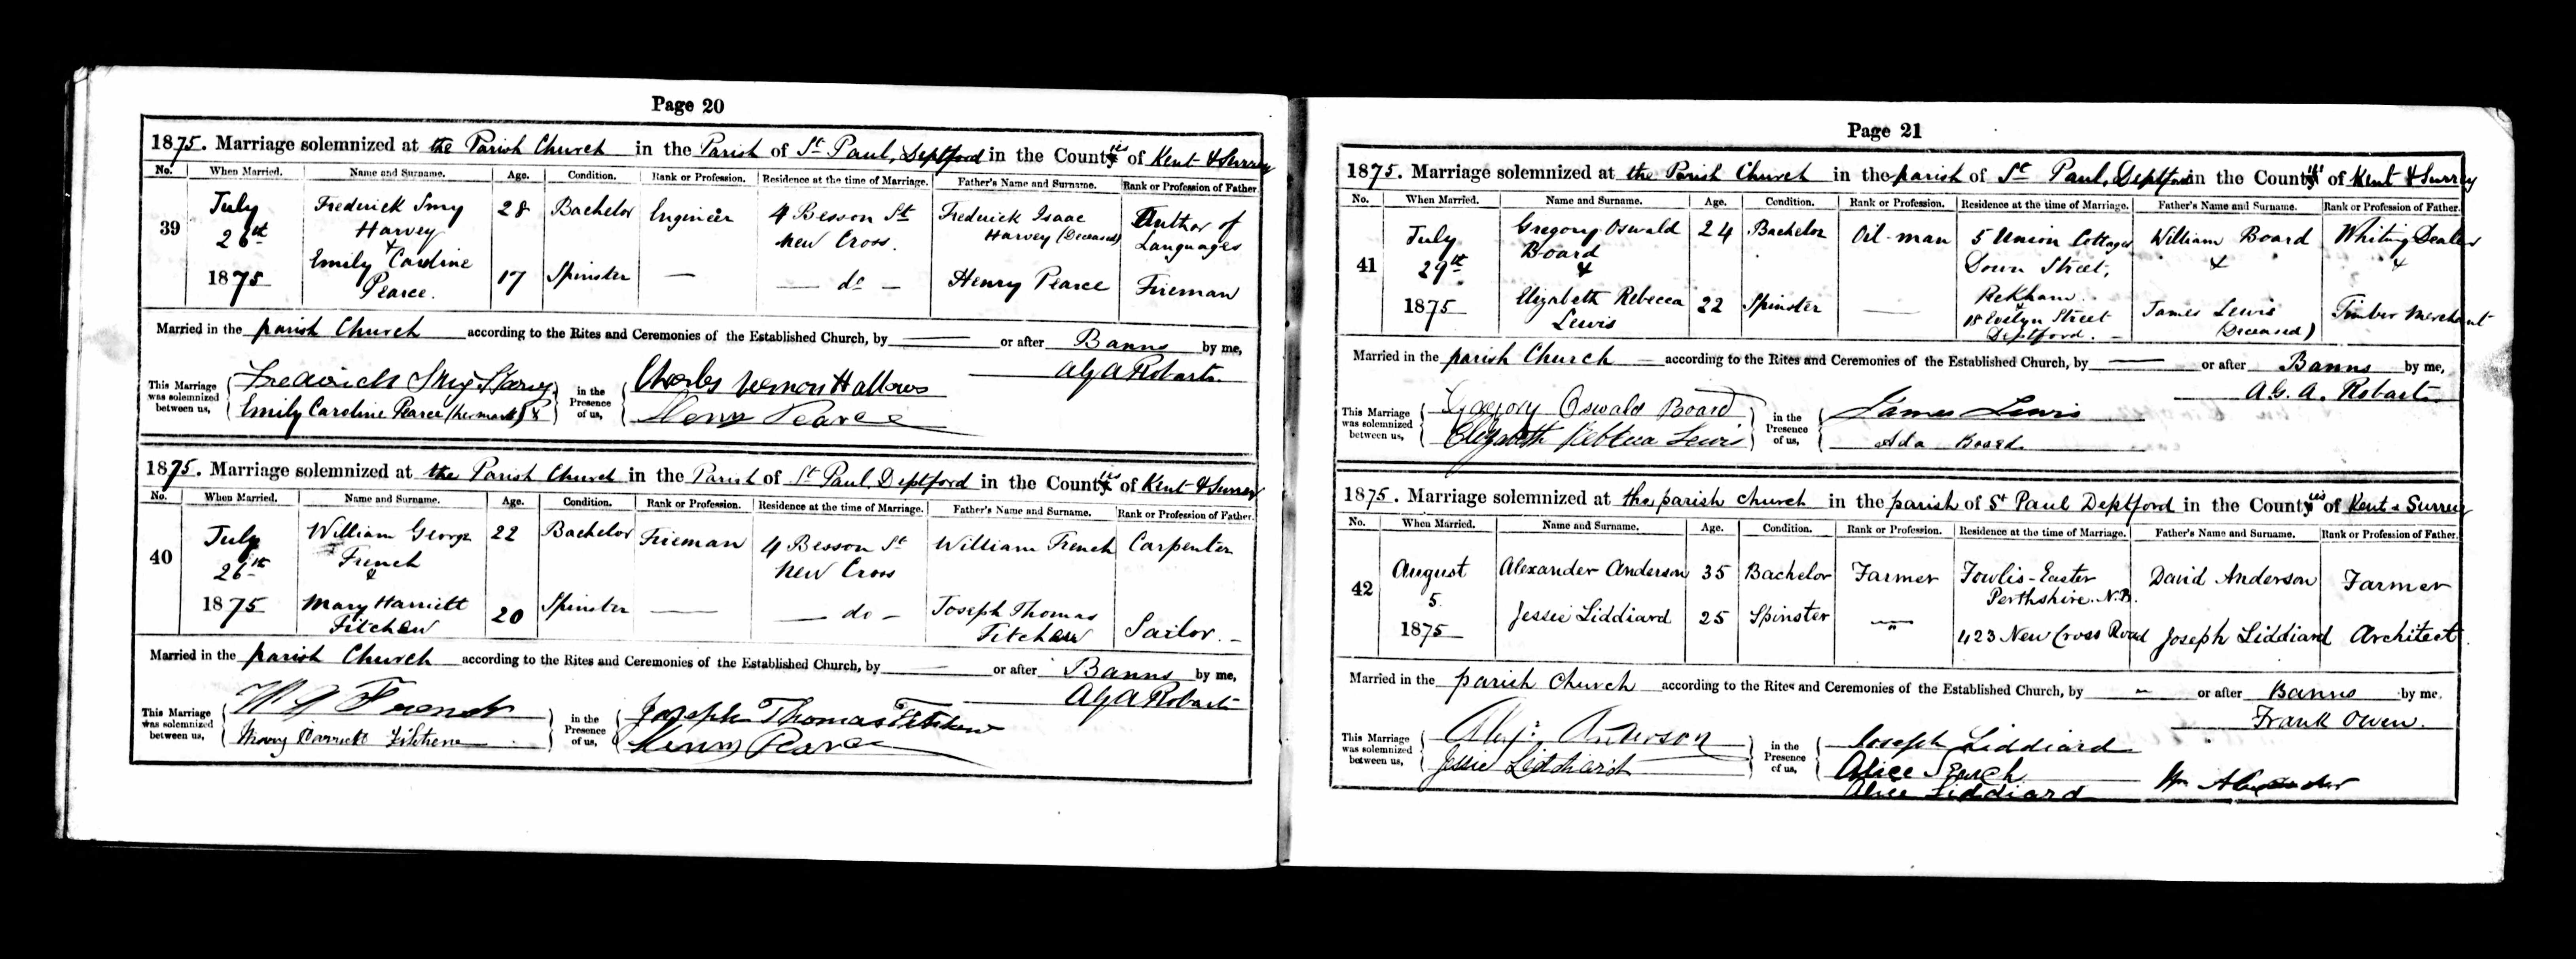 Page 20
1875. Marriage solemnized at the Parish Church in the Parish of St Paul, Deptford in the Counties of Kent & Surrey
No. When Married. Name and Surname. Age. Condition. Rank or Profession. Residence at the time of Marriage. Father's Name and Surname. Rank or Profession of Father.
39
July 26th 1875
Frederick Smy Harvey 28 Bachelor Engineer 4 Besson St New Cross. Frederick Isaac Harvey (Deceased) Author of Languages
&
Emily Caroline Pearce. 17 Spinster — — do — Henry Pearce Fireman
Married in the parish Church according to the Rites and Ceremonies of the Established Church, by — or after Banns by me,
A G A Robarts.
This Marriage was solemnized between us, Frederick Smy Harvey in the Presence of us, Charles Vernon Hallows
Emily Caroline Pearce (her mark) X Henry Pearce
1875. Marriage solemnized at the Parish Church in the Parish of St Paul, Deptford in the Counties of Kent & Surrey
No. When Married. Name and Surname. Age. Condition. Rank or Profession. Residence at the time of Marriage. Father's Name and Surname. Rank or Profession of Father.
40
July 26th 1875
William George French 22 Bachelor Fireman 4 Besson St New Cross William French Carpenter
&
Mary Harriett Fitchew 20 Spinster — — do — Joseph Thomas Fitchew Sailor. -
Married in the parish Church according to the Rites and Ceremonies of the Established Church, by — or after Banns by me,
A G A Robarts
This Marriage was solemnized between us, W G French in the Presence of us, Joseph Thomas Fitchew
Mary Harriett Henry Pearce
Page 21
1875. Marriage solemnized at the Parish Church in the parish of St Paul, Deptford in the Counties of Kent & Surrey
No. When Married. Name and Surname. Age. Condition. Rank or Profession. Residence at the time of Marriage. Father's Name and Surname. Rank or Profession of Father.
41
July 29th 1875
Gregory Oswald Board 24 Bachelor Oil-man 5 Union Cottages Down Street, Peckham William Board Whiting Dealer
& & &
Elizabeth Rebecca Lewis 22 Spinster — 18 Evelyn Street Deptford. - James Lewis (Deceased) Timber Merchant
Married in the parish Church — according to the Rites and Ceremonies of the Established Church, by — or after Banns by me,
A. G. A. Robarts.
This Marriage was solemnized between us, Gregory Oswald Board in the Presence of us, James Lewis
Elizabeth Rebecca Lewis Ada Board
1875. Marriage solemnized at the parish church in the parish of St Paul Deptford in the Counties of Kent & Surrey
No. When Married. Name and Surname. Age. Condition. Rank or Profession. Residence at the time of Marriage. Father's Name and Surname. Rank or Profession of Father.
42
August 5. 1875
Alexander Anderson 35 Bachelor Farmer Fowlis-Easter Perthshire. N.B. David Anderson Farmer
Jessie Liddiard 25 Spinster — " 423 New Cross Road Joseph Liddiard Architect.
Married in the parish church according to the Rites and Ceremonies of the Established Church, by — or after Banns by me,
Frank Owen.
This Marriage was solemnized between us, Alexr. Anderson in the Presence of us, Joseph Liddiard
Jessie Liddiard Alice
Alice Liddiard Wm Alexander